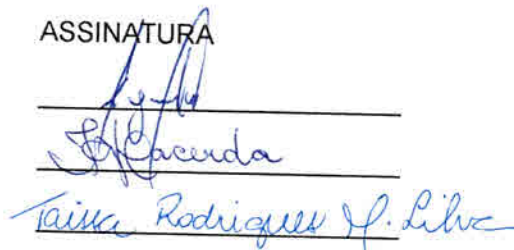 ASSINATURA
Lacerda
Taissa Rodrigues M. Silva